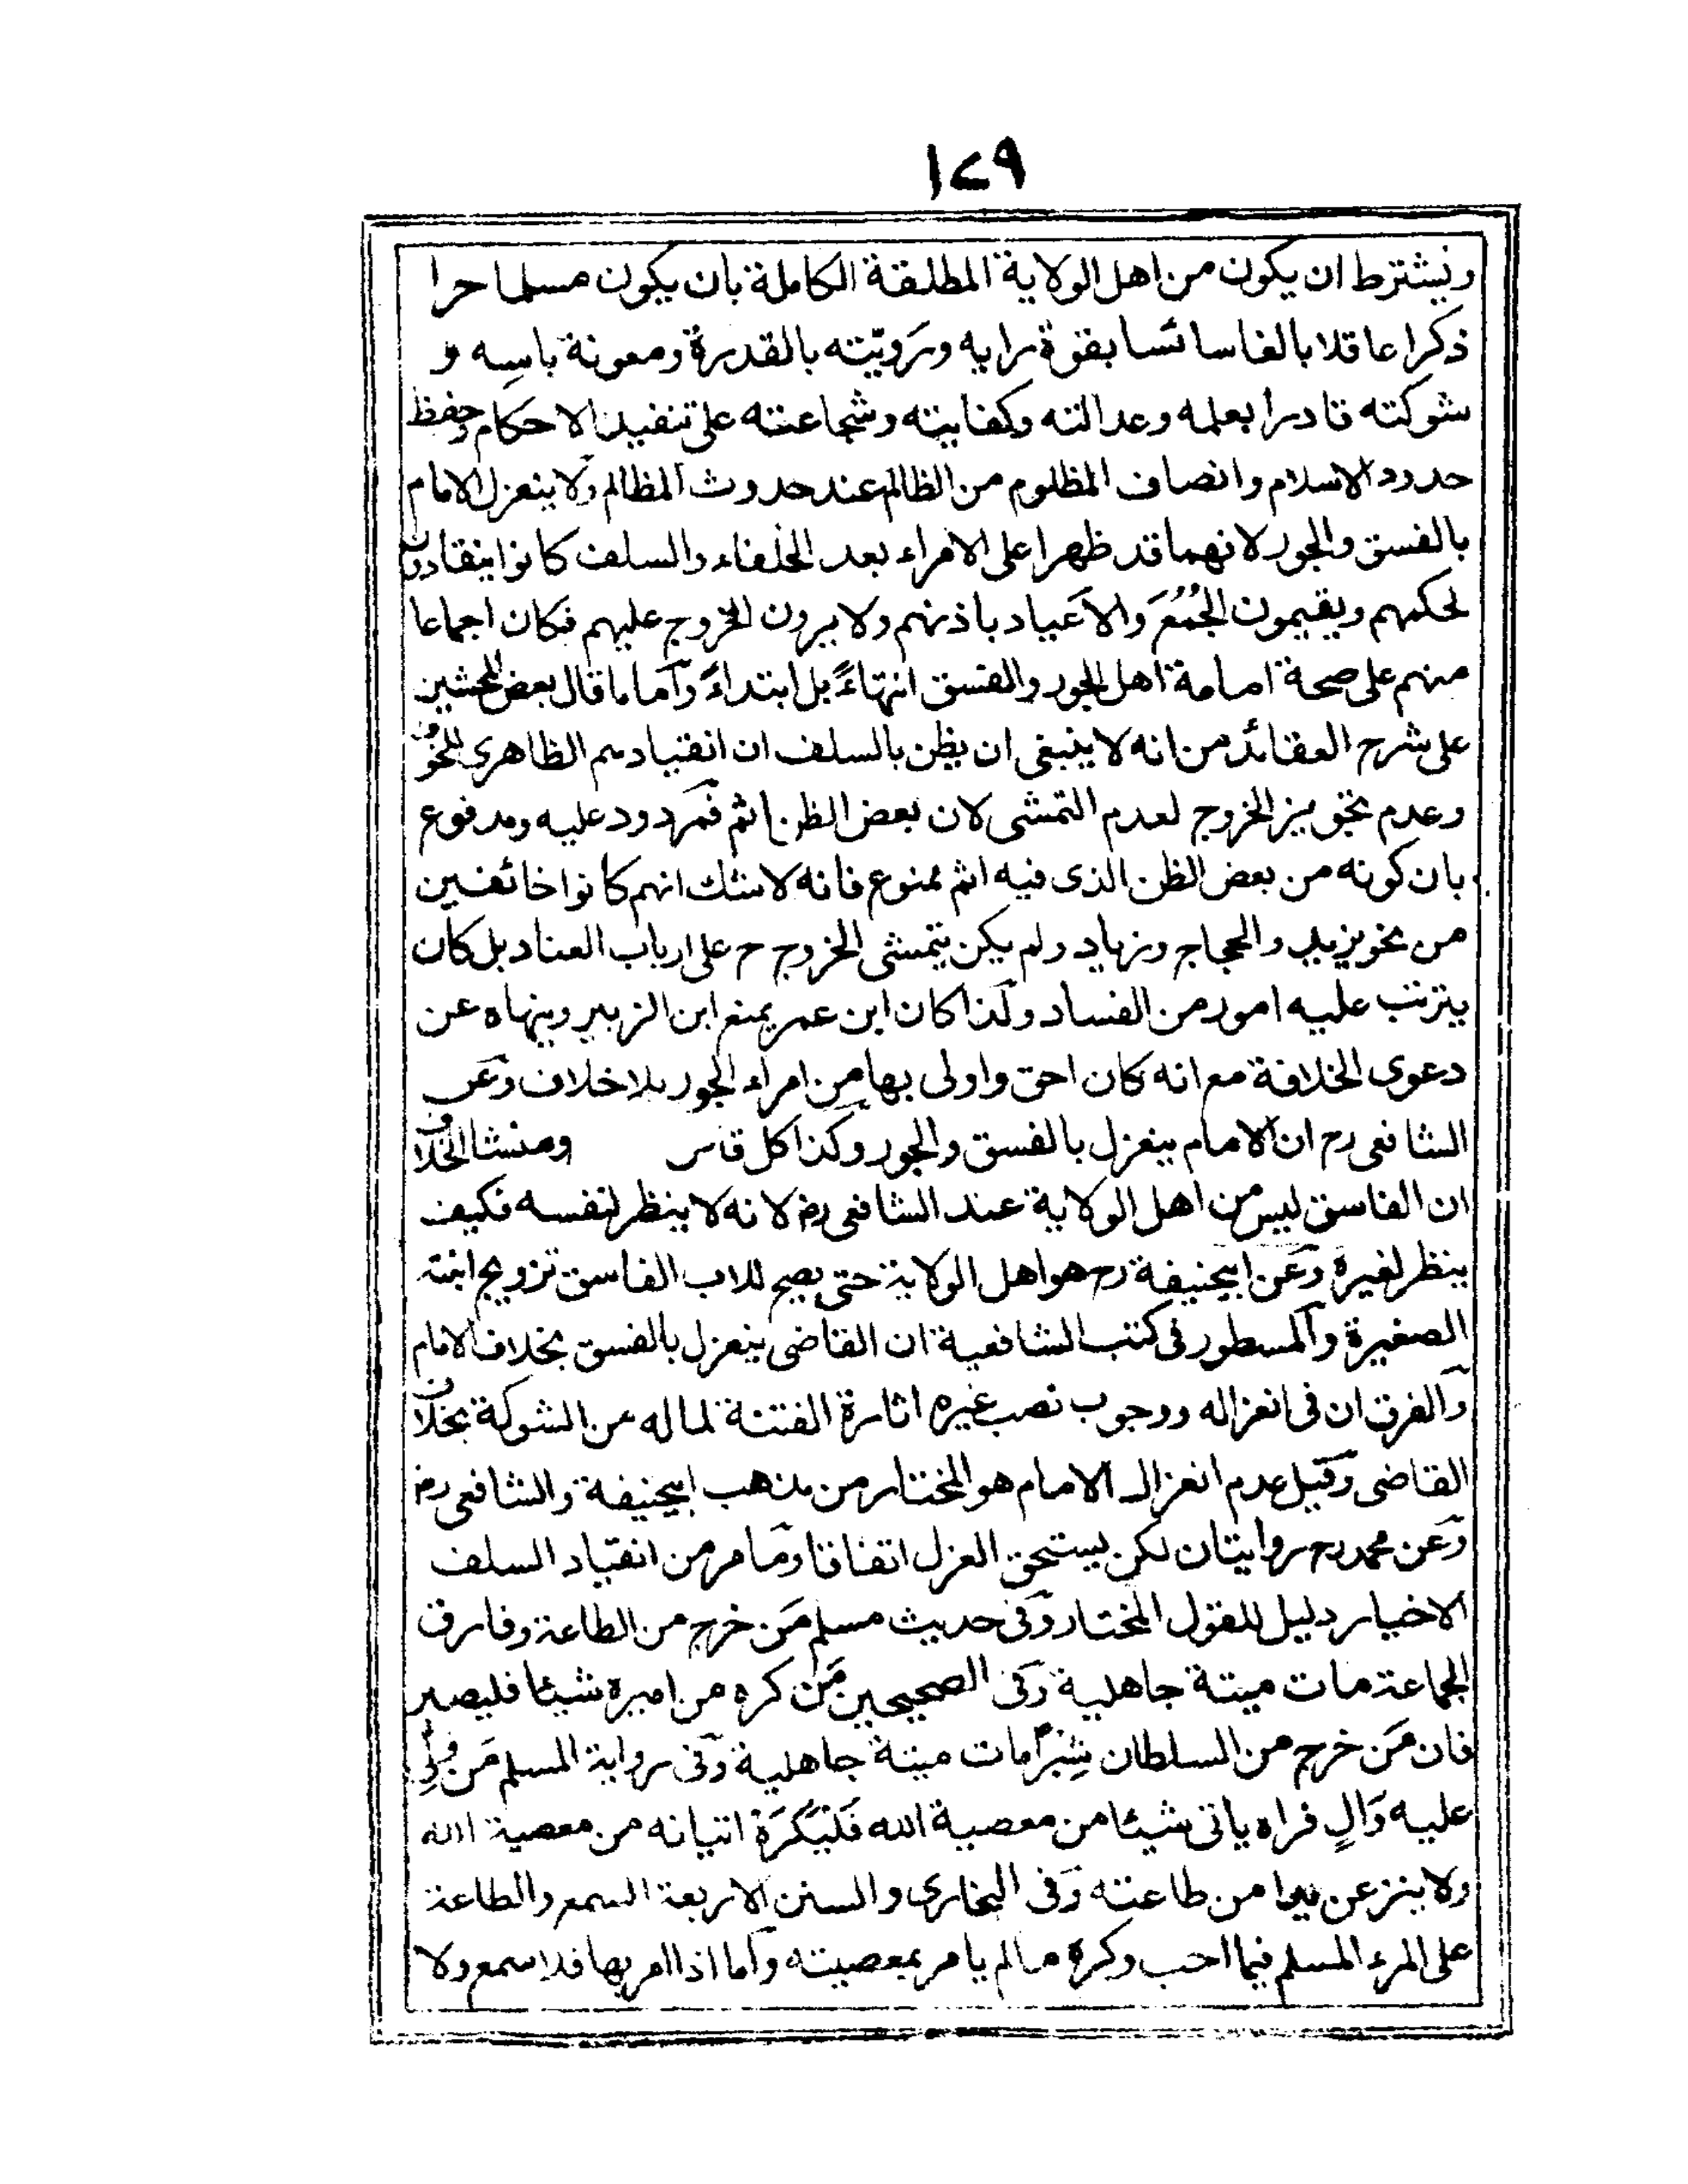 ١٧٩
ويشترط ان يكون من اهل الولاية المطلقة الكاملة بان يكون مسلما حرا
ذكرا عاقلا بالغا سائسا بقوة رايه ورَويّته بالقدرة ومعونة باسِه و
شوكته قادرا بعلمه وعدالته وكفايته وشجاعته على تنفيذ الاحكام وحفظ
حدود الاسلام وانصاف المظلوم من الظالم عند حدوث المظالم ولا ينعزل الامام
بالفسق والجور لانهما قد ظهرا على الامراء بعد الخلفاء والسلف كانوا ينقادون
لحكمهم ويقيمون الجُمُعَ والاَعياد باذنهم ولا يرون الخروج عليهم فكان اجماعا
منهم على صحة امامة اهل الجور والفسق انتهاءً بل ابتداءً واما ما قال بعض المحشين
على شرح العقائد من انه لا ينبغى ان يظن بالسلف ان انقيادهم الظاهرى للخوف
وعدم تجويز الخروج لعدم التمشى لان بعض الظن اثم فمردود عليه ومدفوع
بان كونه من بعض الظن الذى فيه اثم ممنوع فانه لاشك انهم كانوا خائفين
من نحو يزيد والحجاج وزياد ولم يكن يتمشى الخروج ح على ارباب العناد بل كان
يترتب عليه امور من الفساد ولذا كان ابن عمر يمنع ابن الزبير وينهاه عن
دعوى الخلافة مع انه كان احق واولى بها من امراء الجور بلا خلاف وعن
الشافعى رح ان الامام ينعزل بالفسق والجور وكذا كل قاس ومنشا الخلاف
ان الفاسق ليس من اهل الولاية عند الشافعى رض لانه لا ينظر لنفسه فكيف
ينظر لغيره وعن ابيحنيفة رح هو اهل الولاية حتى يصح للاب الفاسق تزويج ابنته
الصغيرة والمسطور فى كتب الشافعية ان القاضى ينعزل بالفسق بخلاف الامام
والفرق ان فى انعزاله ووجوب نصب غيره اثارة الفتنة لما له من الشوكة بخلاف
القاضى وقيل عدم انعزال الامام هو المختار من مذهب ابيحنيفة والشافعى رض
وعن محمد رح روايتان لكن يستحق العزل اتفاقا وما مر من انقياد السلف
الاخيار دليل للقول المختار وفى حديث مسلم مَن خرج من الطاعة وفارق
الجماعة مات ميتة جاهلية وفى الصحيحين مَن كره من اميره شيئا فليصبر
فان مَن خرج من السلطان شِبْرًا مات ميتة جاهلية وفى رواية المسلم مَن وُلِّى
عليه وَالٍ فراه ياتى شيئا من معصية الله فَليَكرَهْ اتيانه من معصية الله
ولا ينزعن يدا من طاعته وفى البخارى والسنن الاربعة السمع والطاعة
على المرء المسلم فيما احب وكره ما لم يامر بمعصيته واما اذا امر بها فلا سمع ولا